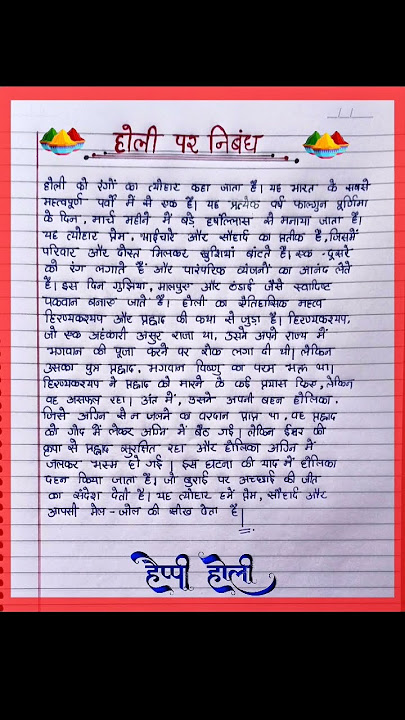 होली पर निबंध
होली को रंगों का त्योहार कहा जाता है। यह भारत के सबसे
महत्वपूर्ण पर्वों में से एक है। यह प्रत्येक वर्ष फाल्गुन पूर्णिमा
के दिन, मार्च महीने में बड़े हर्षोल्लास से मनाया जाता है।
यह त्योहार प्रेम, भाईचारे और सौहार्द का प्रतीक है, जिसमें
परिवार और दोस्त मिलकर खुशियां बांटते हैं। एक-दूसरे
को रंग लगाते हैं और पारंपरिक व्यंजनों का आनंद लेते
हैं। इस दिन गुझिया, मालपुए और ठंडाई जैसे स्वादिष्ट
पकवान बनाए जाते हैं। होली का ऐतिहासिक महत्व
हिरण्यकश्यप और प्रह्लाद की कथा से जुड़ा है। हिरण्यकश्यप,
जो एक अहंकारी असुर राजा था, उसने अपने राज्य में
भगवान की पूजा करने पर रोक लगा दी थी। लेकिन
उसका पुत्र प्रह्लाद, भगवान विष्णु का परम भक्त था।
हिरण्यकश्यप ने प्रह्लाद को मारने के कई प्रयास किए, लेकिन
वह असफल रहा। अंत में, उसने अपनी बहन होलिका,
जिसे अग्नि से न जलने का वरदान प्राप्त था, वह प्रह्लाद
को गोद में लेकर अग्नि में बैठ गई। लेकिन ईश्वर की
कृपा से प्रह्लाद सुरक्षित रहा और होलिका अग्नि में
जलकर भस्म हो गई। इस घटना की याद में होलिका
दहन किया जाता है। जो बुराई पर अच्छाई की जीत
का संदेश देती है। यह त्योहार हमें प्रेम, सौहार्द और
आपसी मेल-जोल की सीख देता है।
हैप्पी होली